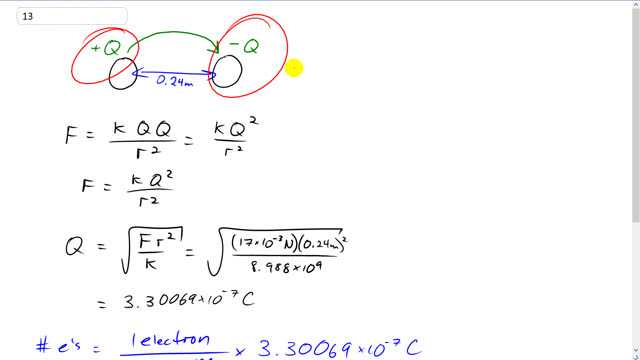 13
+Q - Q
0.24m
F = K Q Q / r² = K Q² / r²
F = K Q² / r²
Q = √(F r² / K) = √((17 × 10⁻³ N)(0.24m)² / 8.988 × 10⁹)
= 3.30069 × 10⁻⁷ C
# e's = 1 electron × 3.30069 × 10⁻⁷ C